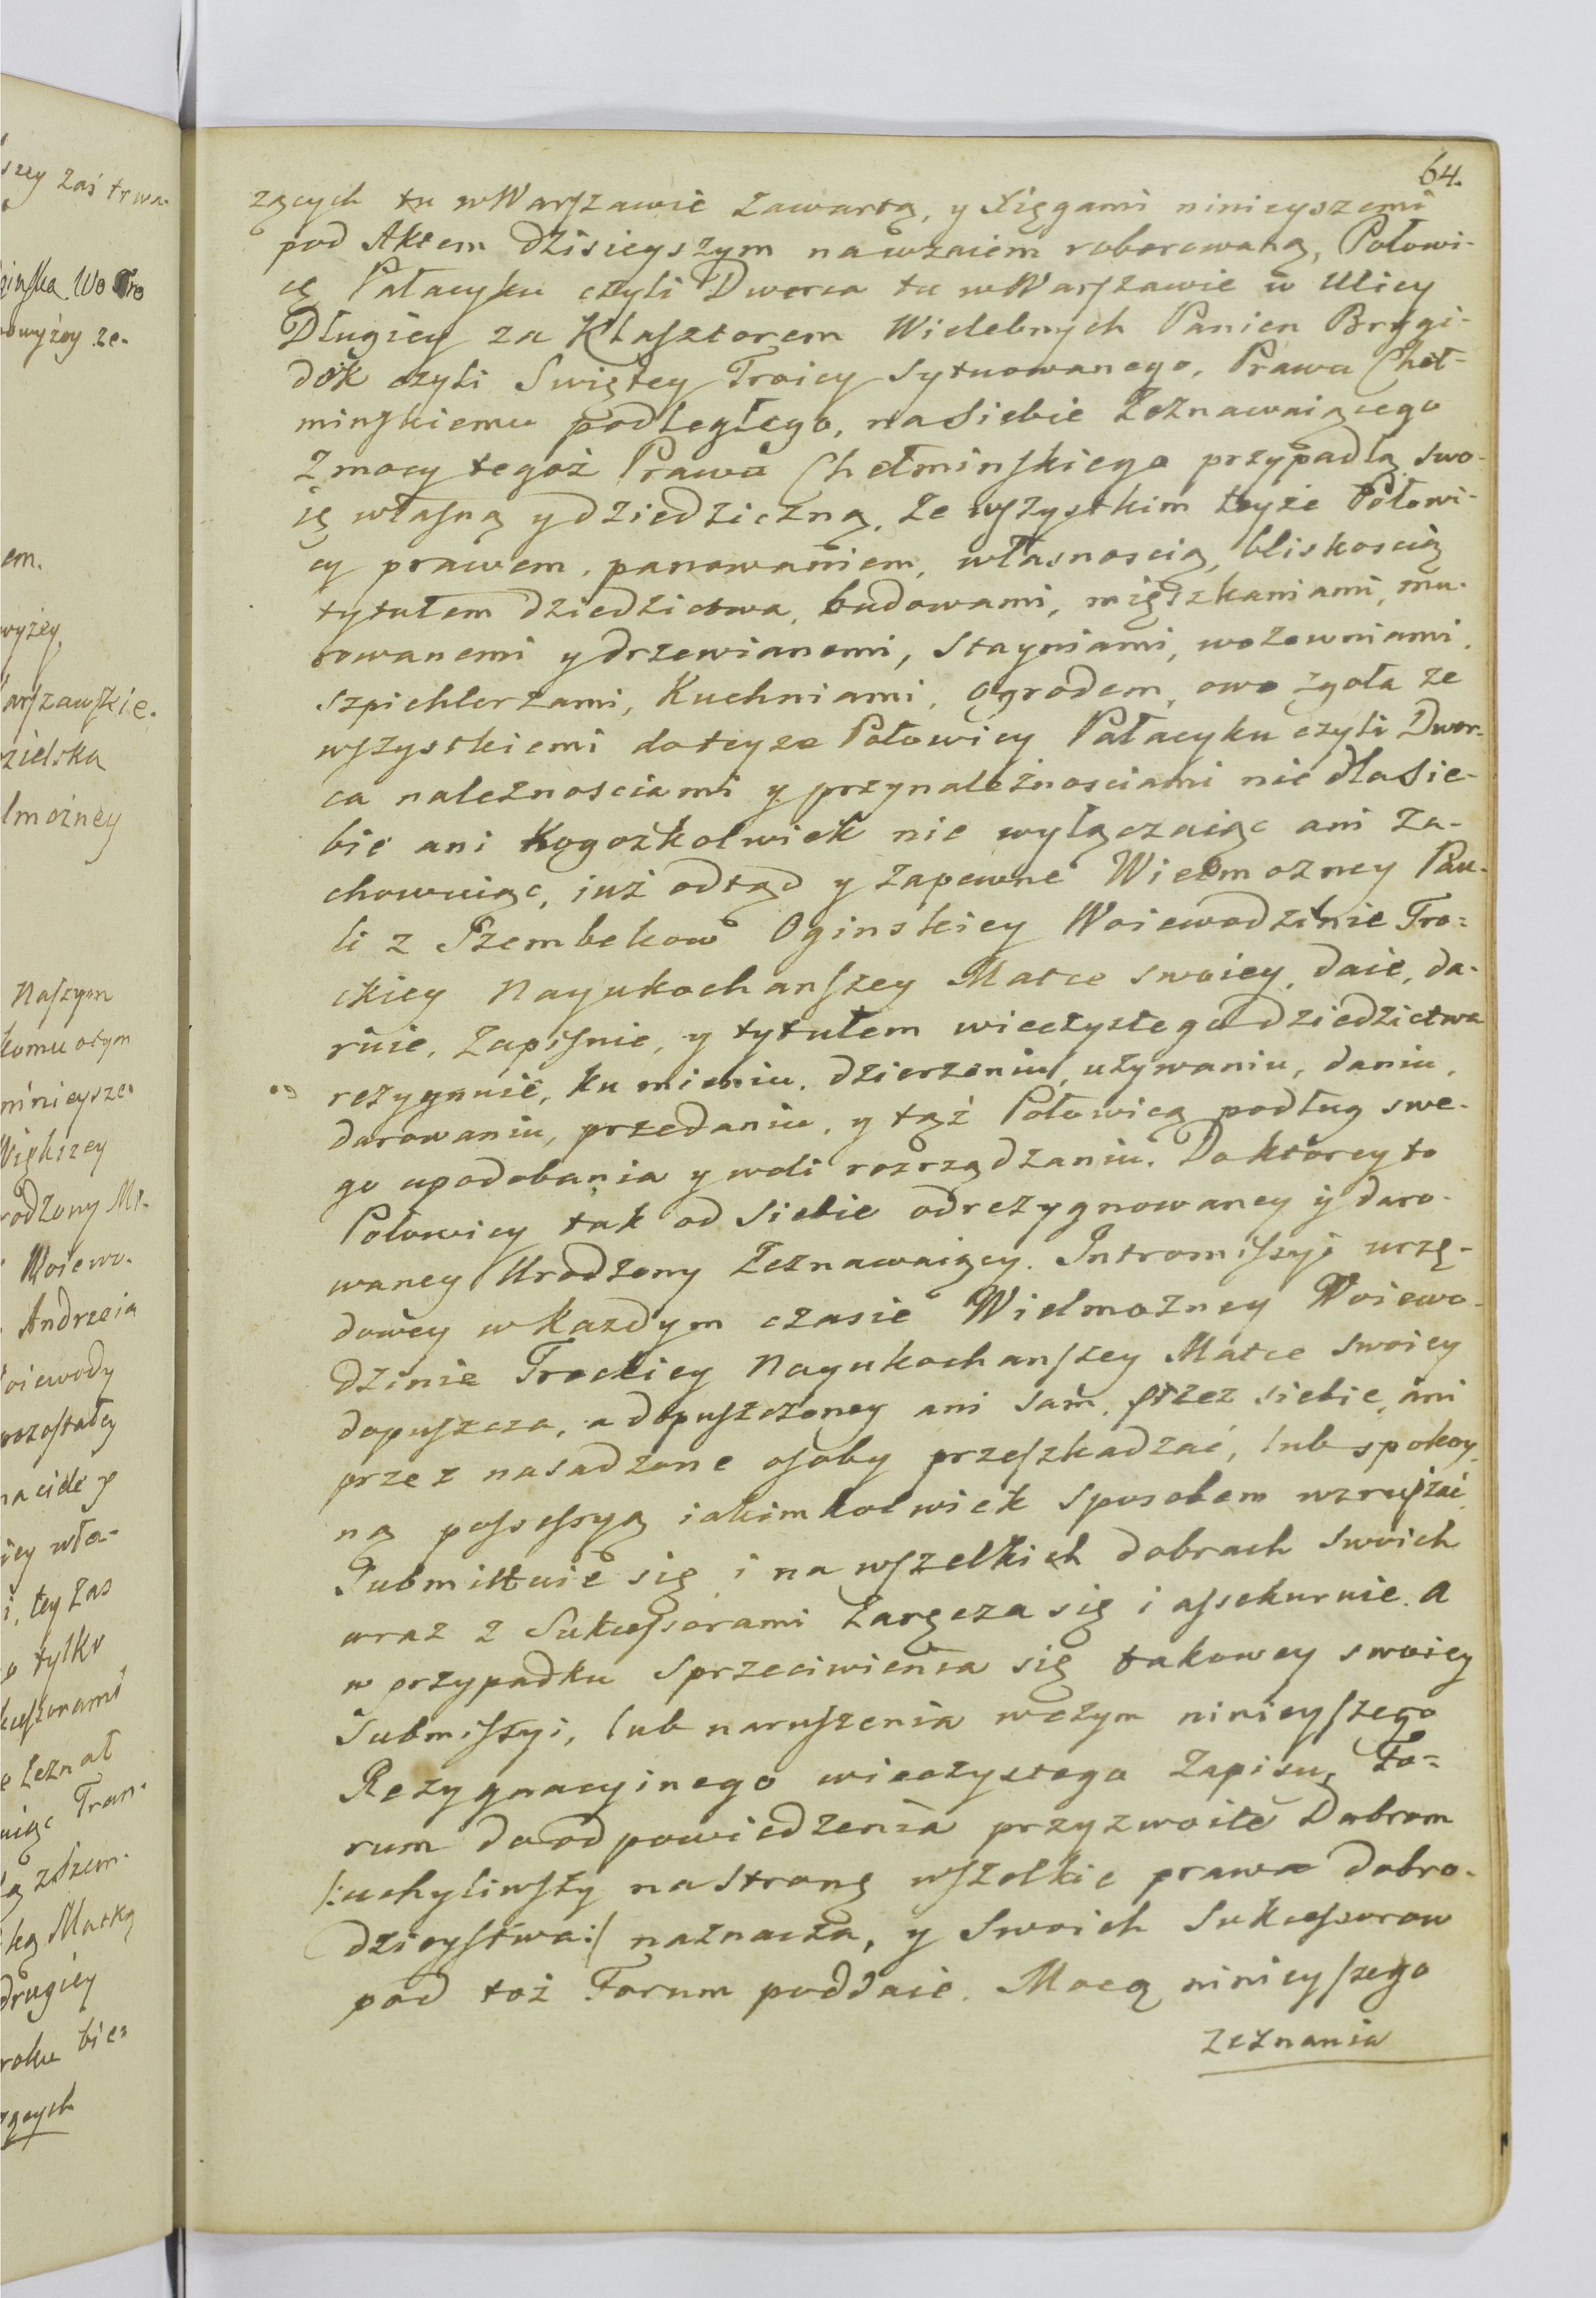 64.
zących tu w Warszawie zawartą, y Xięgami ninieyszemi
pod Aktem dzisieyszym nawzaiem roborowaną, Połowi-
cę Pałacyku czyli Dworca tu w Warszawie w Ulicy
Długiey za Klasztorem Wielebnych Panien Brygi-
dók czyli Swiętey Troicy sytuowanego, Prawu Cheł-
minskiemu podległego, na siebie Zeznawaiącego
z mocy tegoż Prawa Chełminskiego przypadłą swo-
ię własną y dziedziczną, ze wszystkim teyże Połowi-
cy prawem, panowaniem, własnoscią, bliskoscią
tytułem dziedzictwa, budowami, mięszkaniami, mu-
rowanemi y drzewianemi, Stayniami, wozowniami,
szpichlerzami, Kuchniami, Ogrodem, owo zgoła ze
wszystkiemi do teyże Połowicy Pałacyku czyli Dwor-
ca należnosciami y przynależnosciami nic dla sie-
bie ani Kogożkolwiek nie wyłączaiąc ani za-
chowuiąc, iuż odtąd y zapewne Wielmożney Pau-
li z Szembekow Oginskiey Woiewodzinie Tro-
ckiey Nayukochanszey Matce swoiey, daie, da-
ruie, zapisuie, y tytułem wieczystego dziedzictwa
rezygnuie, ku mieniu, dzierzeniu, używaniu, daniu,
darowaniu, przedaniu, y tąż Połowicą podług swe-
go upodobania y woli rozrządzaniu. Do ktorey to
Połowicy tak od siebie odrezygnowaney y daro-
waney Urodzony Zeznawaiący. Intromissyi urzę-
dowey w każdym czasie Wielmożney Woiewo-
dzinie Trockiey Nayukochanszey Matce swoiey
dopuszcza, a dopuszczoney ani sam, przez siebie, ani
przez nasadzone osoby przeszkadzać, lub spokoy-
ną possessyą iakimkolwiek sposobem wzruszać,
Submittuie się i na wszelkich dobrach swoich
wraz z Sukcessorami zaręcza się i assekuruie. A
w przypadku sprzeciwienia się takowey swoiey
Submissyi, lub naruszenia w czym ninieyszego
Rezygnacyinego wieczystego Zapisu, Fo-
rum do odpowiedzenia przyzwoite Dobrom
/:uchyliwszy na stronę wszelkie prawa dobro-
dzieystwa:/ naznacza, y Swoich Sukcessorow
pod toż Forum poddaie. Mocą ninieyszego
zeznania